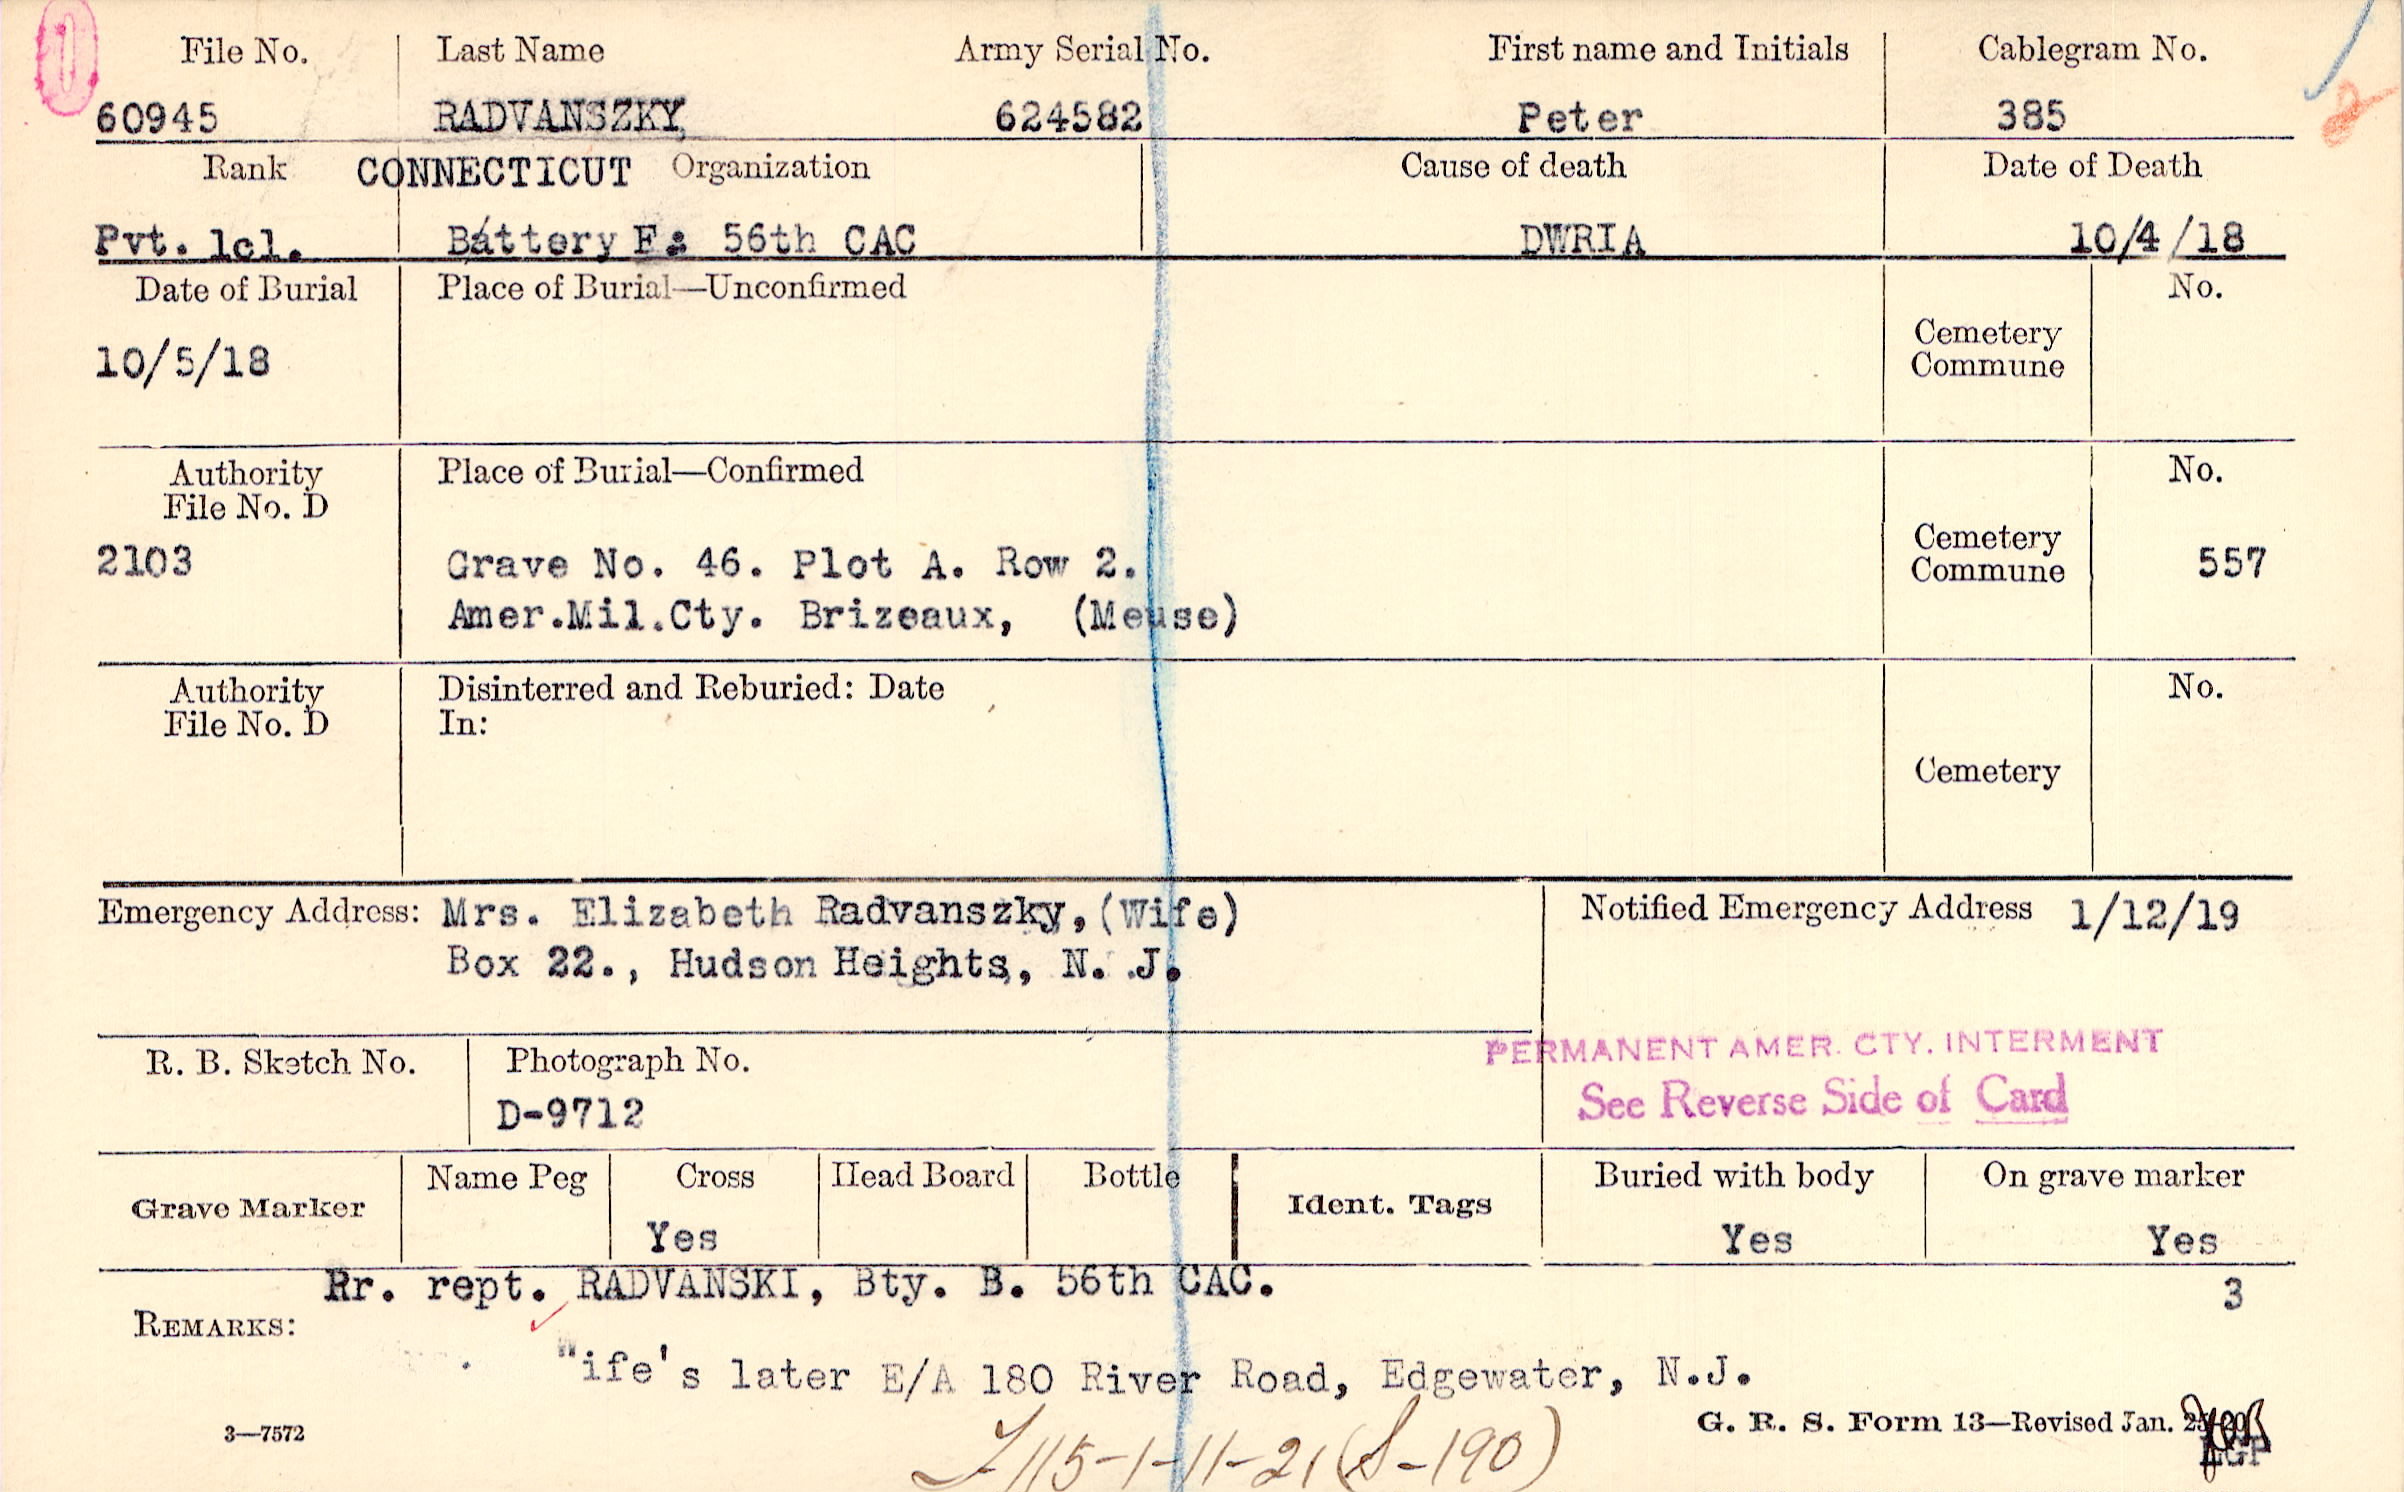 File No. Last Name Army Serial No. First name and Initials Cablegram No.
60945 RADVANSZKY, 624582 Peter 385
Rank CONNECTICUT Organization Cause of death Date of Death
Pvt. 1cl. Battery F: 56th CAC DWRIA 10/4/18
Date of Burial Place of Burial—Unconfirmed No.
10/5/18 Cemetery
Commune
Authority Place of Burial—Confirmed No.
File No. D
2103 Grave No. 46. Plot A. Row 2. Cemetery
Commune 557
Amer.Mil.Cty. Brizeaux, (Meuse)
Authority Disinterred and Reburied: Date No.
File No. D In:
Cemetery
Emergency Address: Mrs. Elizabeth Radvanszky, (Wife) Notified Emergency Address 1/12/19
Box 22., Hudson Heights, N. J.
PERMANENT AMER. CTY. INTERMENT
R. B. Sketch No. Photograph No.
D-9712 See Reverse Side of Card
Grave Marker Name Peg Cross Head Board Bottle Ident. Tags Buried with body On grave marker
Yes Yes Yes
Rr. rept. RADVANSKI, Bty. B. 56th CAC. 3
REMARKS:
"ife's later E/A 180 River Road, Edgewater, N.J.
3—7572 G. R. S. Form 13—Revised Jan.
115-1-11-21 (S-190)